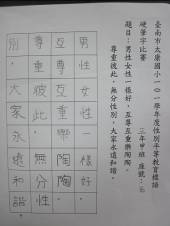 臺南市太康國小一○一學年度性別平等教育標語
硬筆字比賽
三年甲班 座號：
題目：男性女性一樣好，互尊互重樂陶陶。
尊重彼此，無分性別，大家永遠和諧。
男性女性一樣好，
互尊互重樂陶陶。
尊重彼此，無分性
別，大家永遠和諧。